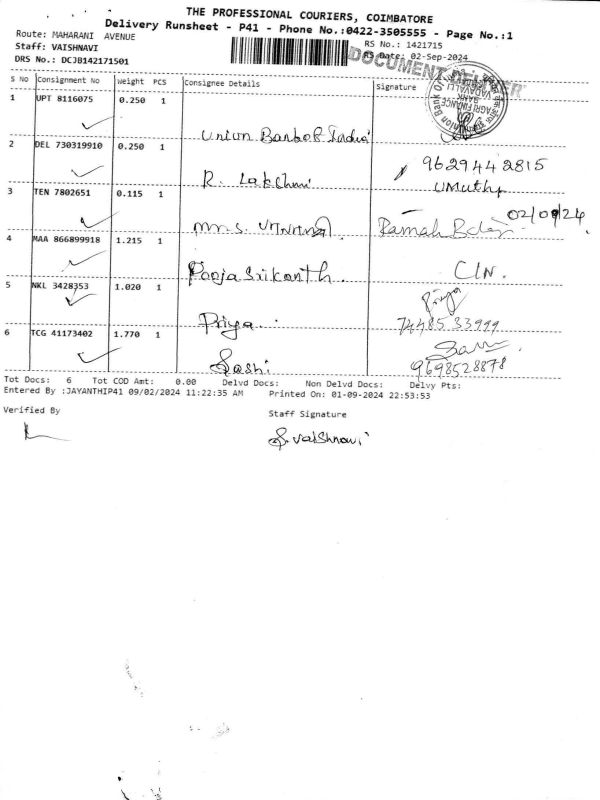 THE PROFESSIONAL COURIERS, COIMBATORE
Delivery Runsheet - P41 - Phone No.:0422-3505555 - Page No.:1
Route: MAHARANI AVENUE
RS No.: 1421715
Staff: VAISHNAVI
RS Date: 02-Sep-2024
DRS No.: DCJB142171501
S No Consignment No Weight PCS Consignee Details Signature
1 UPT 8116075 0.250 1
Union Bank of India
2 DEL 730319910 0.250 1
R. Lakshmi
9629442815
UMuthu
3 TEN 7802651 0.115 1
Mrs.
02/09/24
4 MAA 866899918 1.215 1
Pooja Srikanth.
CIN.
5 NKL 3428353 1.020 1
Priya
Priya
74485 33999
6 TCG 41173402 1.770 1
Sashi
9698528878
Tot Docs: 6 Tot COD Amt: 0.00 Delvd Docs: Non Delvd Docs: Delvy Pts:
Entered By :JAYANTHIP41 09/02/2024 11:22:35 AM Printed On: 01-09-2024 22:53:53
Verified By Staff Signature
S. Vaishnavi